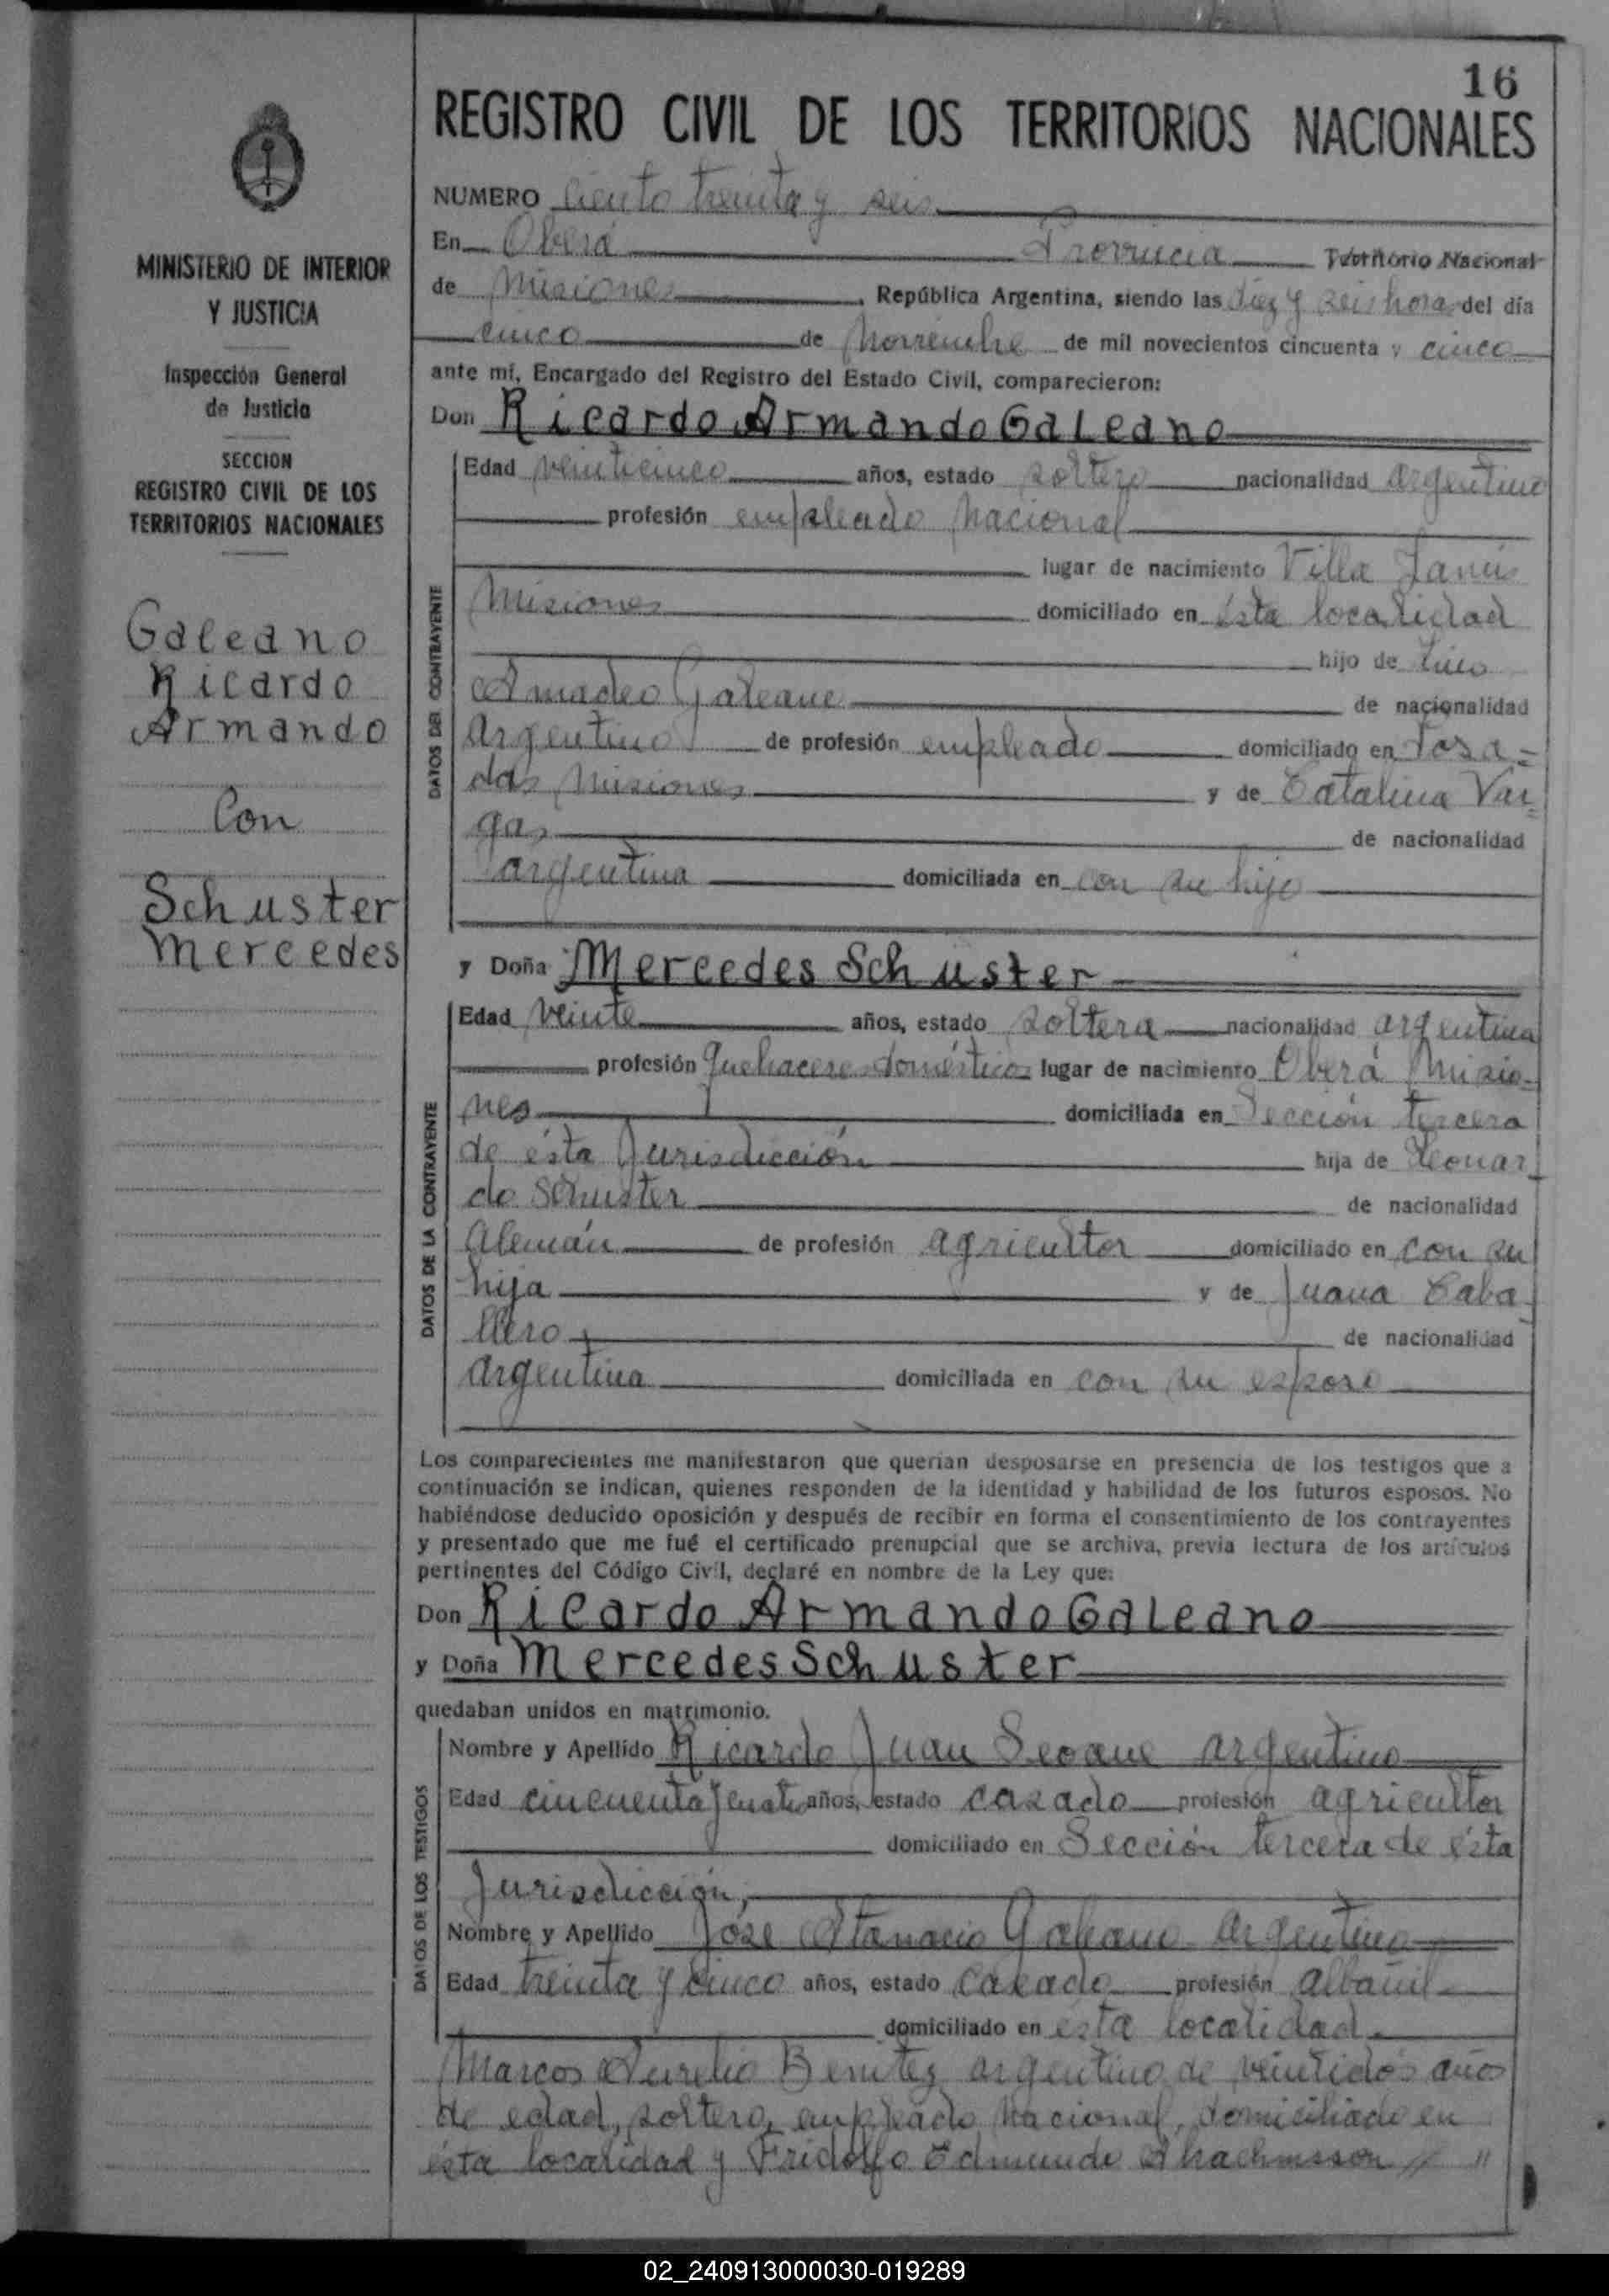 16
REGISTRO CIVIL DE LOS TERRITORIOS NACIONALES
MINISTERIO DE INTERIOR
Y JUSTICIA
Inspección General
de Justicia
SECCION
REGISTRO CIVIL DE LOS
TERRITORIOS NACIONALES
Galeano
Ricardo
Armando
Con
Schuster
Mercedes
NUMERO ciento treinta y seis
En Oberá Provincia Territorio Nacional
de Misiones, República Argentina, siendo las diez y seis horas del día
cinco de Noviembre de mil novecientos cincuenta y cinco
ante mí, Encargado del Registro del Estado Civil, comparecieron:
Don Ricardo Armando Galeano
DATOS DEL CONTRAYENTE
Edad veinticinco años, estado soltero nacionalidad argentino
profesión empleado Nacional
lugar de nacimiento Villa Lanús
Misiones domiciliado en ésta localidad
hijo de
Amadeo Galeano de nacionalidad
argentino de profesión empleado domiciliado en Posa=
das Misiones y de Catalina Var=
gas de nacionalidad
argentina domiciliada en con su hijo
y Doña Mercedes Schuster
DATOS DE LA CONTRAYENTE
Edad veinte años, estado soltera nacionalidad argentina
profesión Quehaceres domésticos lugar de nacimiento Oberá Misio-
nes domiciliada en Sección tercera
de ésta Jurisdicción hija de Leonar-
do Schuster de nacionalidad
Alemán de profesión agricultor domiciliado en con su
hija y de Juana Caba-
llero de nacionalidad
argentina domiciliada en con su esposo
Los comparecientes me manifestaron que querían desposarse en presencia de los testigos que a
continuación se indican, quienes responden de la identidad y habilidad de los futuros esposos. No
habiéndose deducido oposición y después de recibir en forma el consentimiento de los contrayentes
y presentado que me fué el certificado prenupcial que se archiva, previa lectura de los artículos
pertinentes del Código Civil, declaré en nombre de la Ley que:
Don Ricardo Armando Galeano
y Doña Mercedes Schuster
quedaban unidos en matrimonio.
DATOS DE LOS TESTIGOS
Nombre y Apellido Ricardo Juan Seoane argentino
Edad cincuenta y cuatro años, estado casado profesión agricultor
domiciliado en Sección tercera de ésta
Jurisdicción,
Nombre y Apellido José Atanacio Galeano argentino
Edad treinta y cinco años, estado casado profesión albañil
domiciliado en ésta localidad.
Marcos Aurelio Benitez argentino de veintidós años
de edad, soltero, empleado Nacional, domiciliado en
ésta localidad y Fridolfo Edmundo
02_240913000030-019289